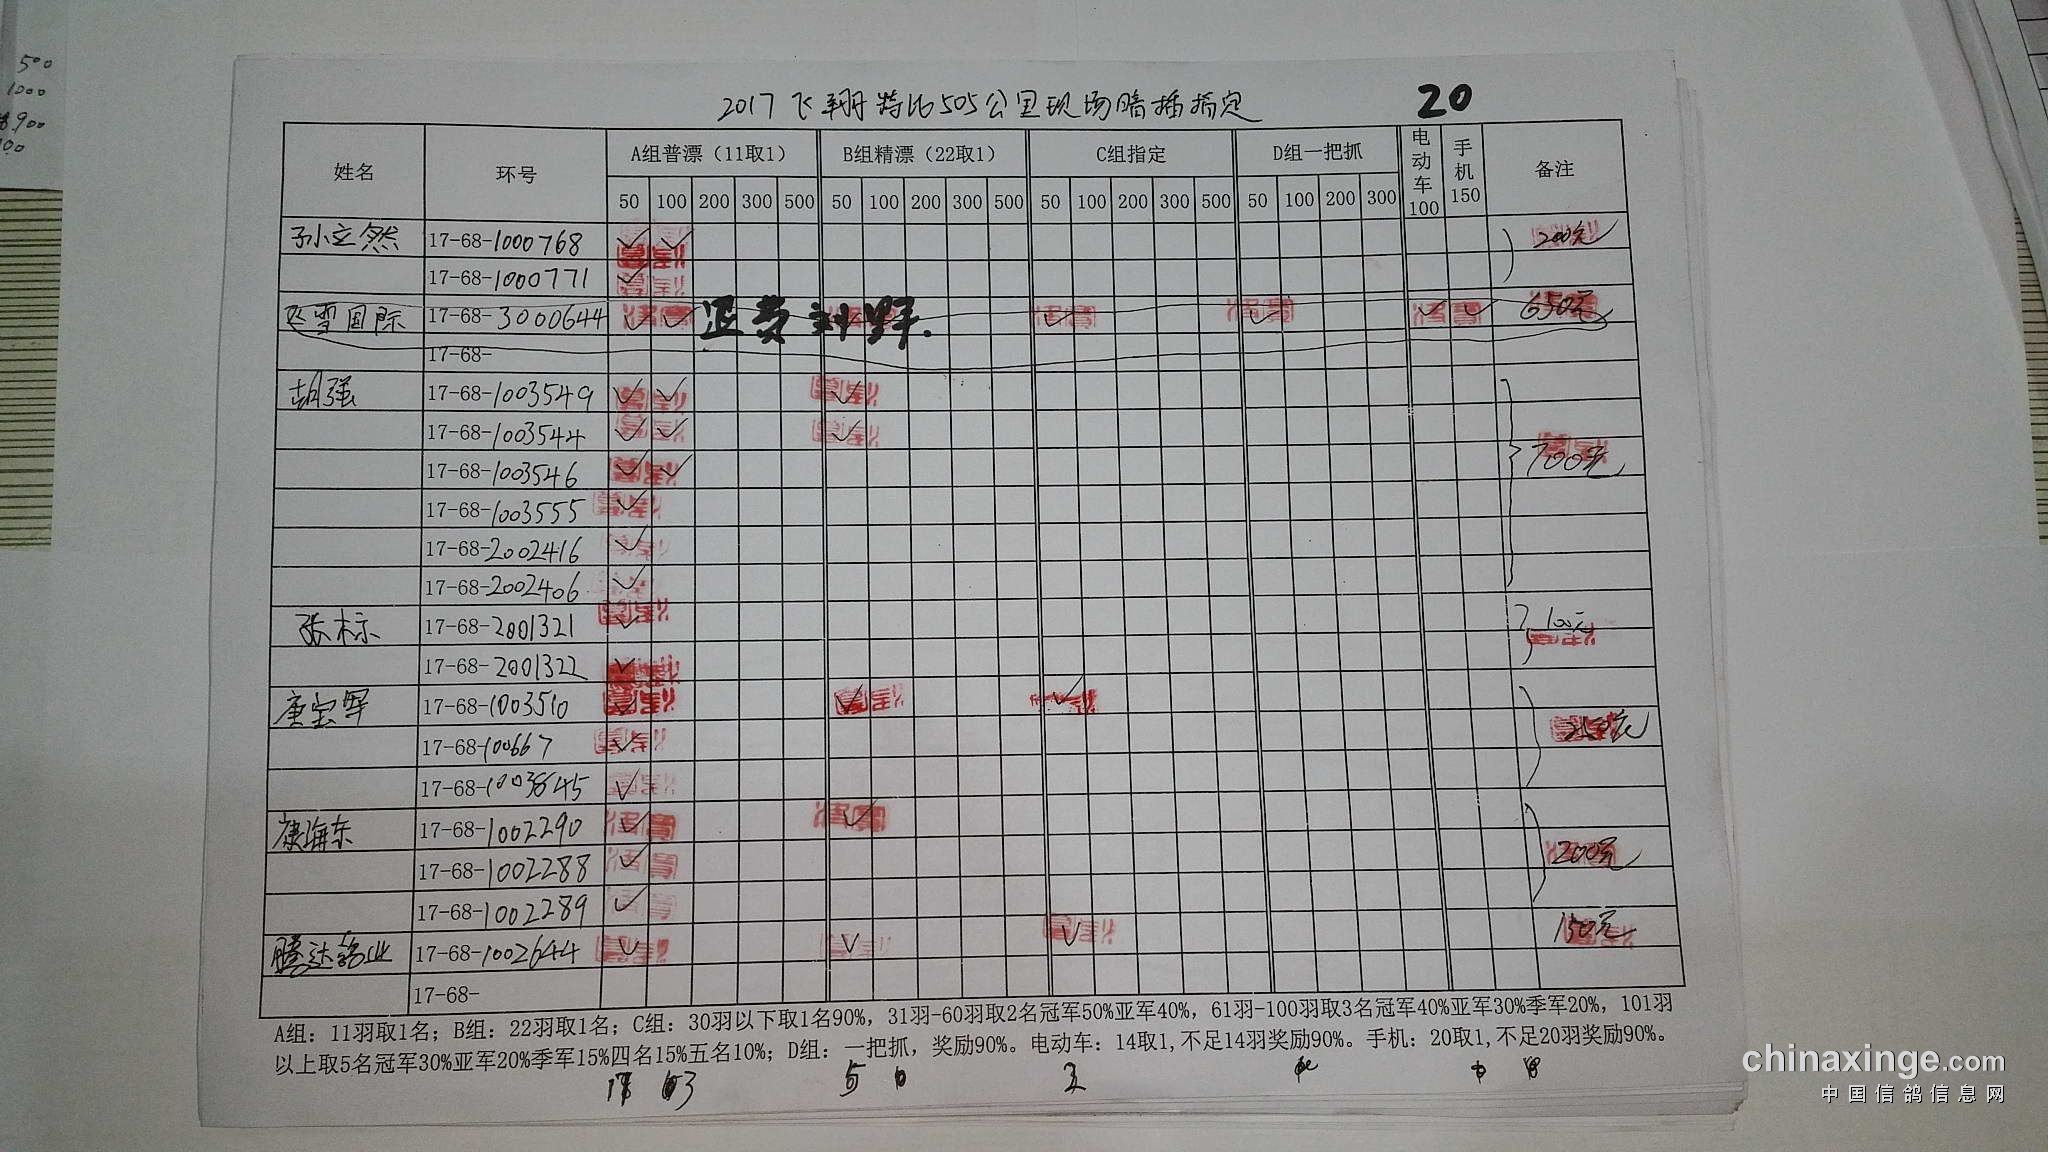 500
1000
900
2017飞翔特比505公里现场暗插指定 20
姓名 环号 A组普漂（11取1） B组精漂（22取1） C组指定 D组一把抓 电动车100 手机150 备注
50 100 200 300 500 50 100 200 300 500 50 100 200 300 500 50 100 200 300
孙立然 17-68-1000768 ✓ ✓ 200元
17-68-1000771 ✓
飞雪国际 17-68-3000644 ✓ ✓ 退费 ✓ ✓ ✓ ✓ 650元
17-68-
胡强 17-68-1003549 ✓ ✓ ✓
17-68-1003544 ✓ ✓ ✓
17-68-1003546 ✓ ✓ 700元
17-68-1003555 ✓
17-68-2002416 ✓
17-68-2002406 ✓
张标 17-68-2001321 ✓ 100元
17-68-2001322 ✓
唐宝军 17-68-1003510 ✓ ✓ ✓
17-68-100667 ✓ 250元
17-68-10038545 ✓
康海东 17-68-1002290 ✓ ✓
17-68-1002288 ✓ 200元
17-68-1002289 ✓
腾达铝业 17-68-1002644 ✓ ✓ ✓ 150元
17-68-
A组：11羽取1名；B组：22羽取1名；C组：30羽以下取1名90%，31羽-60羽取2名冠军50%亚军40%，61羽-100羽取3名冠军40%亚军30%季军20%，101羽
以上取5名冠军30%亚军20%季军15%四名15%五名10%；D组：一把抓，奖励90%。电动车：14取1,不足14羽奖励90%。手机：20取1,不足20羽奖励90%。
chinaxinge.com
中国信鸽信息网